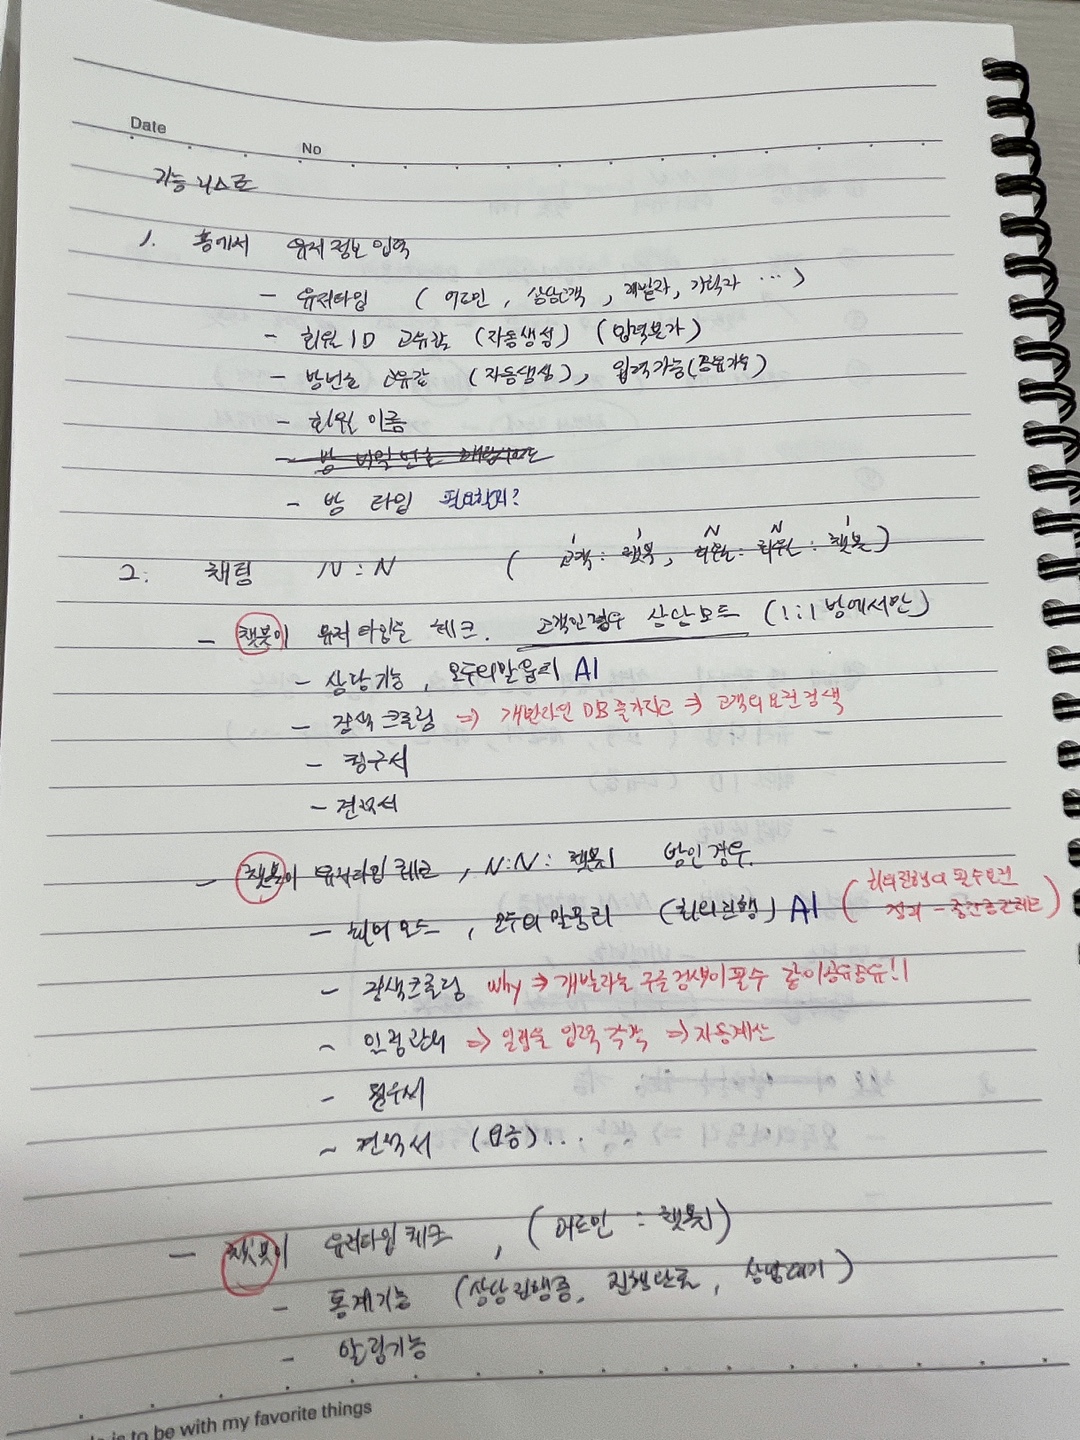 Date
No
기능 리스트
1. 홈에서 유저 정보 입력
- 유저타입 ( 어드민 , 상담고객 , 개발자, 기획자 ... )
- 회원 ID 고유값 (자동생성) (입력불가)
- 방번호 고유값 (자동생성), 입력가능(공유가능)
- 회원 이름
- 방 비밀번호
- 방 타입 필요할지?
2. 채팅 N : N ( 고객 : 챗봇 , 회원 : 회원 : 챗봇 )
1 1 N N 1
- 챗봇이 유저 타입을 체크. 고객인 경우 상담모드 (1:1 방에서만)
- 상담기능 , 모두의말뭉치 AI
- 검색 크롤링 ⇒ 개발라인 DB 긁가지고 ⇒ 고객의 요건 검색
- 청구서
- 견적서
- 챗봇이 유저타입 체크 , N:N: 챗봇1 방인 경우.
- 회의 모드 , 모두의 말뭉치 (회의진행) AI (회의진행의 필수요건
정의 - 중간중간체크)
- 검색크롤링 why ⇒ 개발자는 구글 검색이 필수 같이 공유!!
- 일정관리 ⇒ 일정을 입력 각각 ⇒ 자동계산
-
- 견적서 (요금) ...
- 챗봇이 유저타입 체크 , (어드민 : 챗봇1)
- 통계기능 (상담진행중, 진행완료, 상담대기)
- 알림기능
is to be with my favorite things